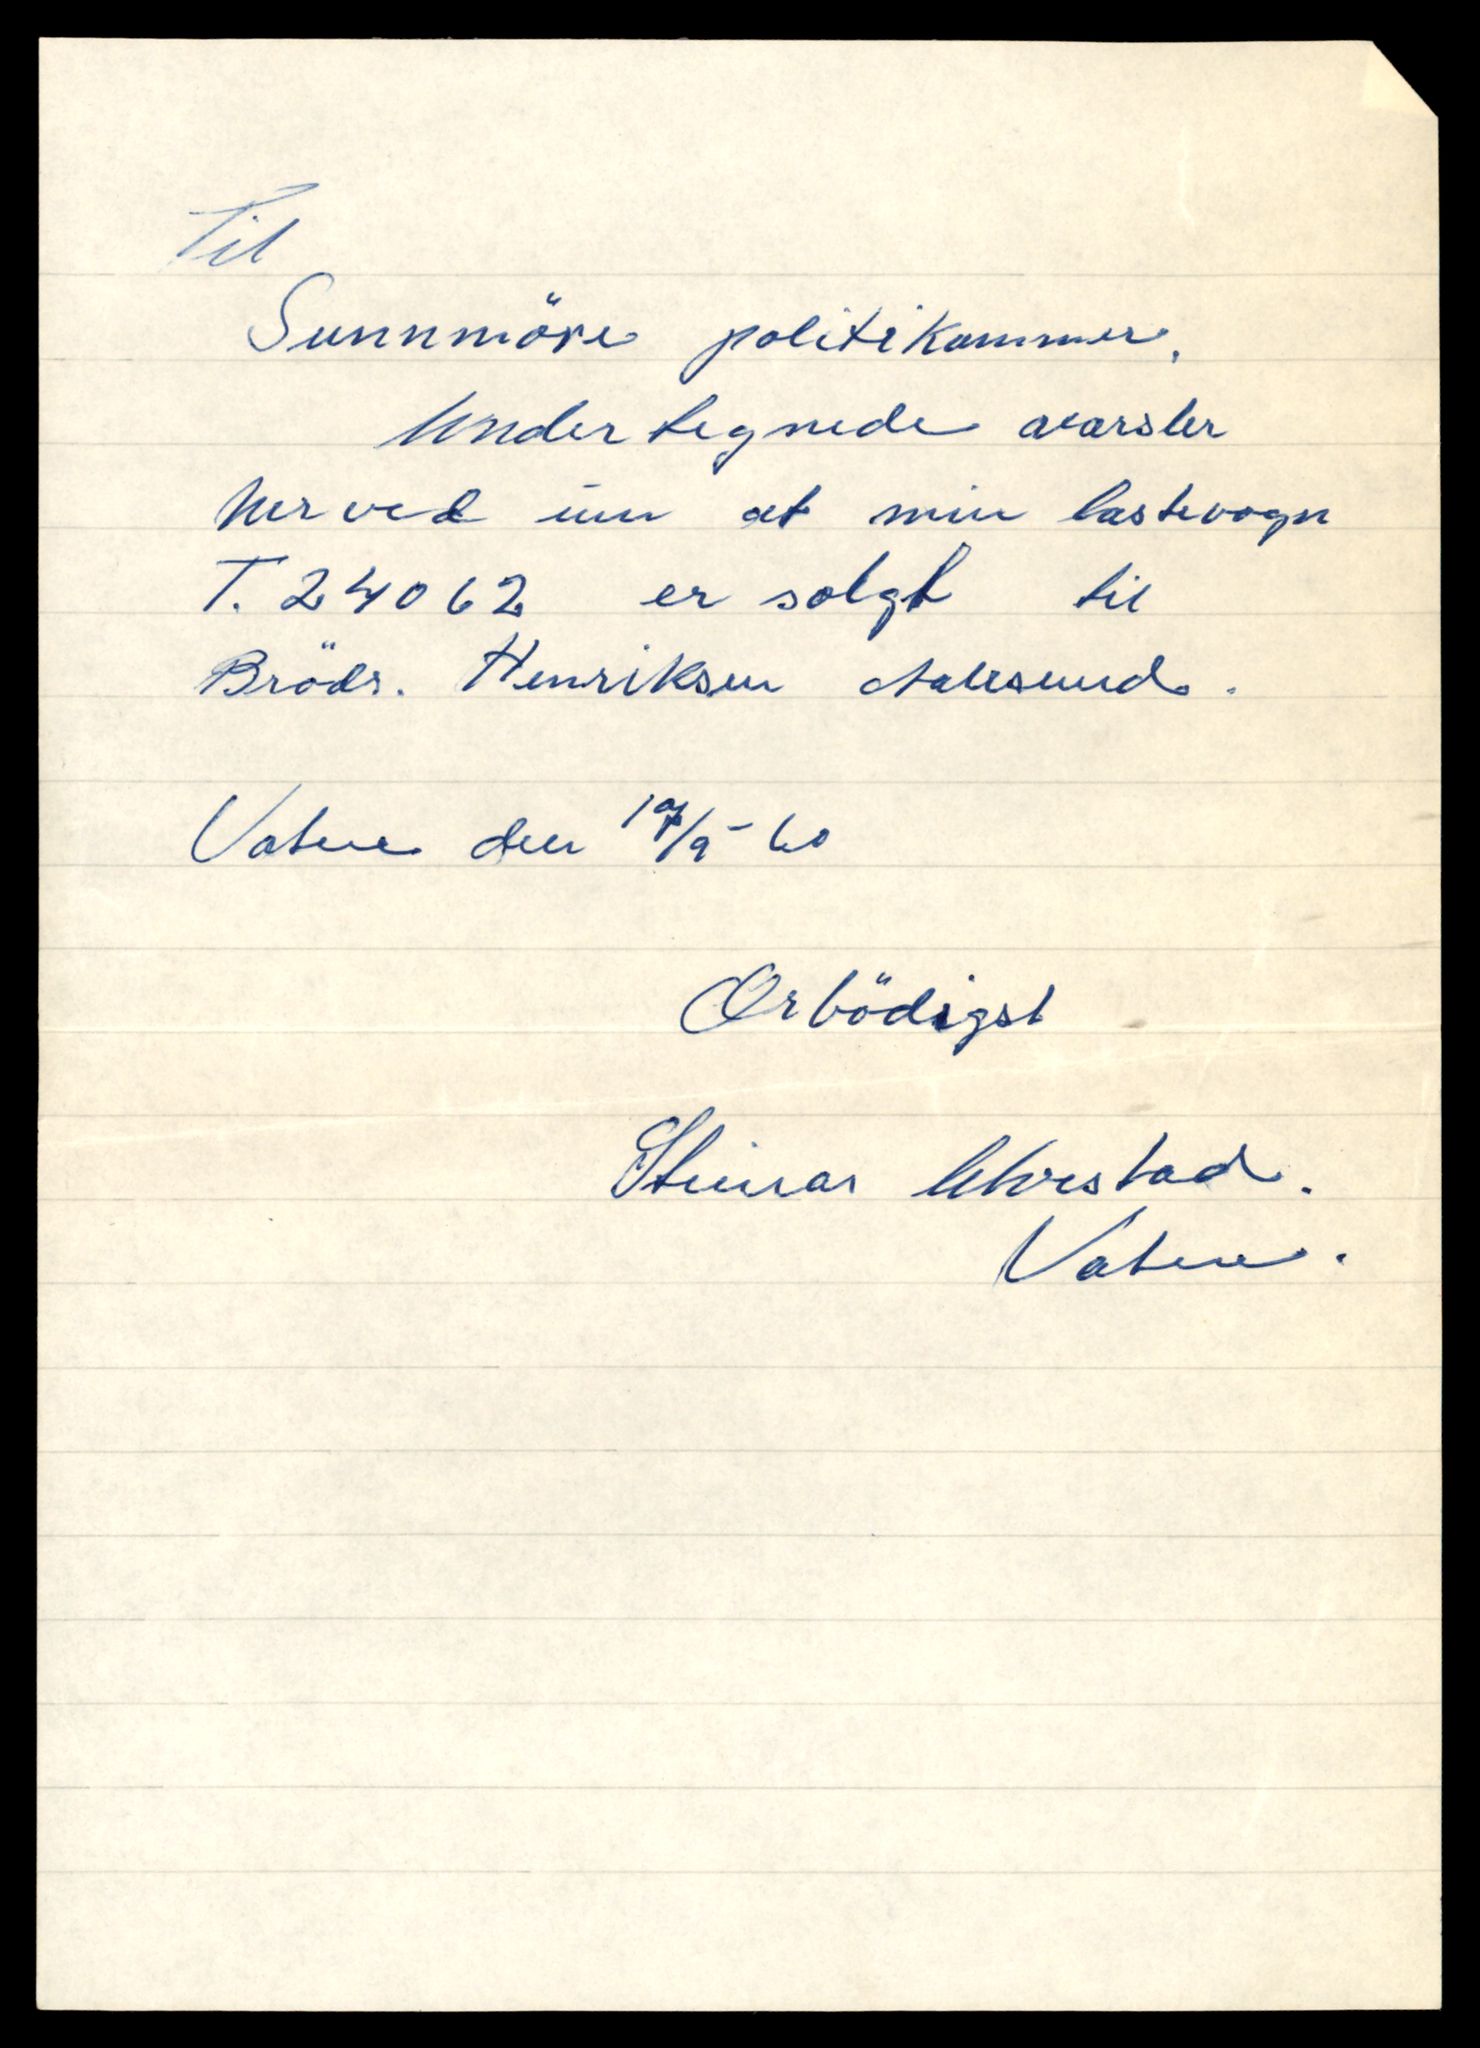 Til
Sunnmöre politikammer.
Undertegnede avarsler
herved inn at min lastevogn
T. 24062 er solgt til
Brödr. Henriksen Aalesund.
Vatne den /9 - 60
Ærbödigst
Steinar Uhrstad.
Vatne.